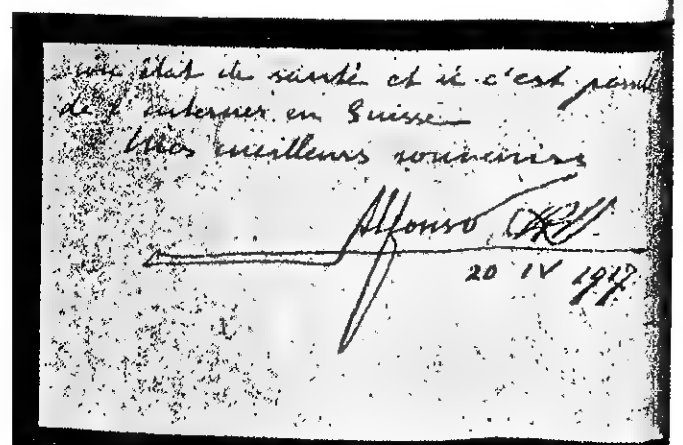 son état de santé et si c'est possible
de l'interner en Suisse
Mes meilleurs souvenirs
Alfonso
20 IV 1917